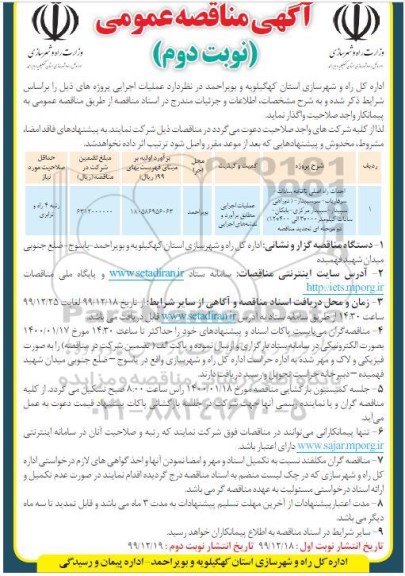 آگهی مناقصه عمومی
(نوبت دوم)
وزارت راه و شهرسازی
وزارت راه و شهرسازی
اداره کل راه و شهرسازی استان کهگیلویه و بویراحمد در نظر دارد عملیات اجرایی پروژه های ذیل را براساس
شرایط ذکر شده و به شرح مشخصات، اطلاعات و جزئیات مندرج در اسناد مناقصه از طریق مناقصه عمومی به
پیمانکار واجد صلاحیت واگذار نماید.
لذا از کلیه شرکت های واجد صلاحیت دعوت می گردد در مناقصات ذیل شرکت نمایند به پیشنهادهای فاقد امضاء،
مشروط، مخدوش و پیشنهادهایی که بعد از موعد مقرر واصل شود ترتیب اثر داده نخواهد شد.
ردیف
شرح پروژه
کمیت و کیفیت
محل اجرا
برآورد اولیه بر مبنای فهرست بهای ۹۹ (ریال)
مبلغ تضمین شرکت در مناقصه (ریال)
حداقل صلاحیت مورد نیاز
۱
عملیات اجرایی مطابق برآورد و نقشه های اجرایی
بویراحمد
رتبه ۴ راه و ترابری
۱- دستگاه مناقصه گزار و نشانی: اداره کل راه و شهرسازی استان کهگیلویه و بویراحمد-یاسوج- ضلع جنوبی
میدان شهید فهمیده
۲- آدرس سایت اینترنتی مناقصات: سامانه ستاد www.setadiran.ir و پایگاه ملی مناقصات
http://iets.mporg.ir
۳- زمان و محل دریافت اسناد مناقصه و آگاهی از سایر شرایط: از تاریخ ۹۹/۱۲/۱۸ لغایت ۹۹/۱۲/۲۵
ساعت ۱۴:۳۰ از محل سامانه ستاد به آدرس www.setadiran.ir قابل دریافت می باشد.
۴- مناقصه گران می بایست پاکات اسناد و پیشنهادهای خود را حداکثر تا ساعت ۱۴:۳۰ مورخ ۱۴۰۰/۰۱/۱۷
بصورت الکترونیکی در سامانه ستاد بارگزاری و ارسال نموده و پاکت الف (تضمین شرکت در مناقصه) را به صورت
فیزیکی و لاک و مهر شده به اداره حراست اداره کل راه و شهرسازی واقع در یاسوج – ضلع جنوبی میدان شهید
فهمیده – دبیرخانه حراست تحویل و رسید دریافت دارند.
۵- جلسه کمیسیون بازگشایی مناقصه مورخ ۱۴۰۰/۰۱/۱۸ راس ساعت ۸:۰۰ صبح تشکیل می گردد. از کلیه
مناقصه گران و یا نماینده رسمی آنها جهت شرکت در جلسه بازگشایی پاکات پیشنهاد قیمت دعوت به عمل
می آید.
۶- تنها پیمانکارانی می توانند در مناقصات فوق شرکت نمایند که رتبه و صلاحیت آنان در سامانه اینترنتی
www.sajar.mporg.ir دارای اعتبار باشد.
۷- مناقصه گران مکلفند نسبت به تکمیل اسناد و مهر و امضا نمودن آنها و اخذ گواهی های لازم درخواستی اداره
کل راه و شهرسازی که در چک لیست منضم به اسناد مناقصه درج گردیده اقدام نمایند در صورت عدم تکمیل و
ارائه اسناد درخواستی مسئولیت به عهده مناقصه گر می باشد.
۸- مدت اعتبار پیشنهادات از آخرین مهلت تسلیم پیشنهادات به مدت ۳ ماه می باشد و قابل تمدید تا سه ماه
دیگر می باشد.
۹- سایر شرایط در اسناد مناقصه به اطلاع پیمانکاران خواهد رسید.
تاریخ انتشار نوبت اول: ۹۹/۱۲/۱۸ تاریخ انتشار نوبت دوم: ۹۹/۱۲/۱۹
اداره کل راه و شهرسازی استان کهگیلویه و بویراحمد - اداره پیمان و رسیدگی